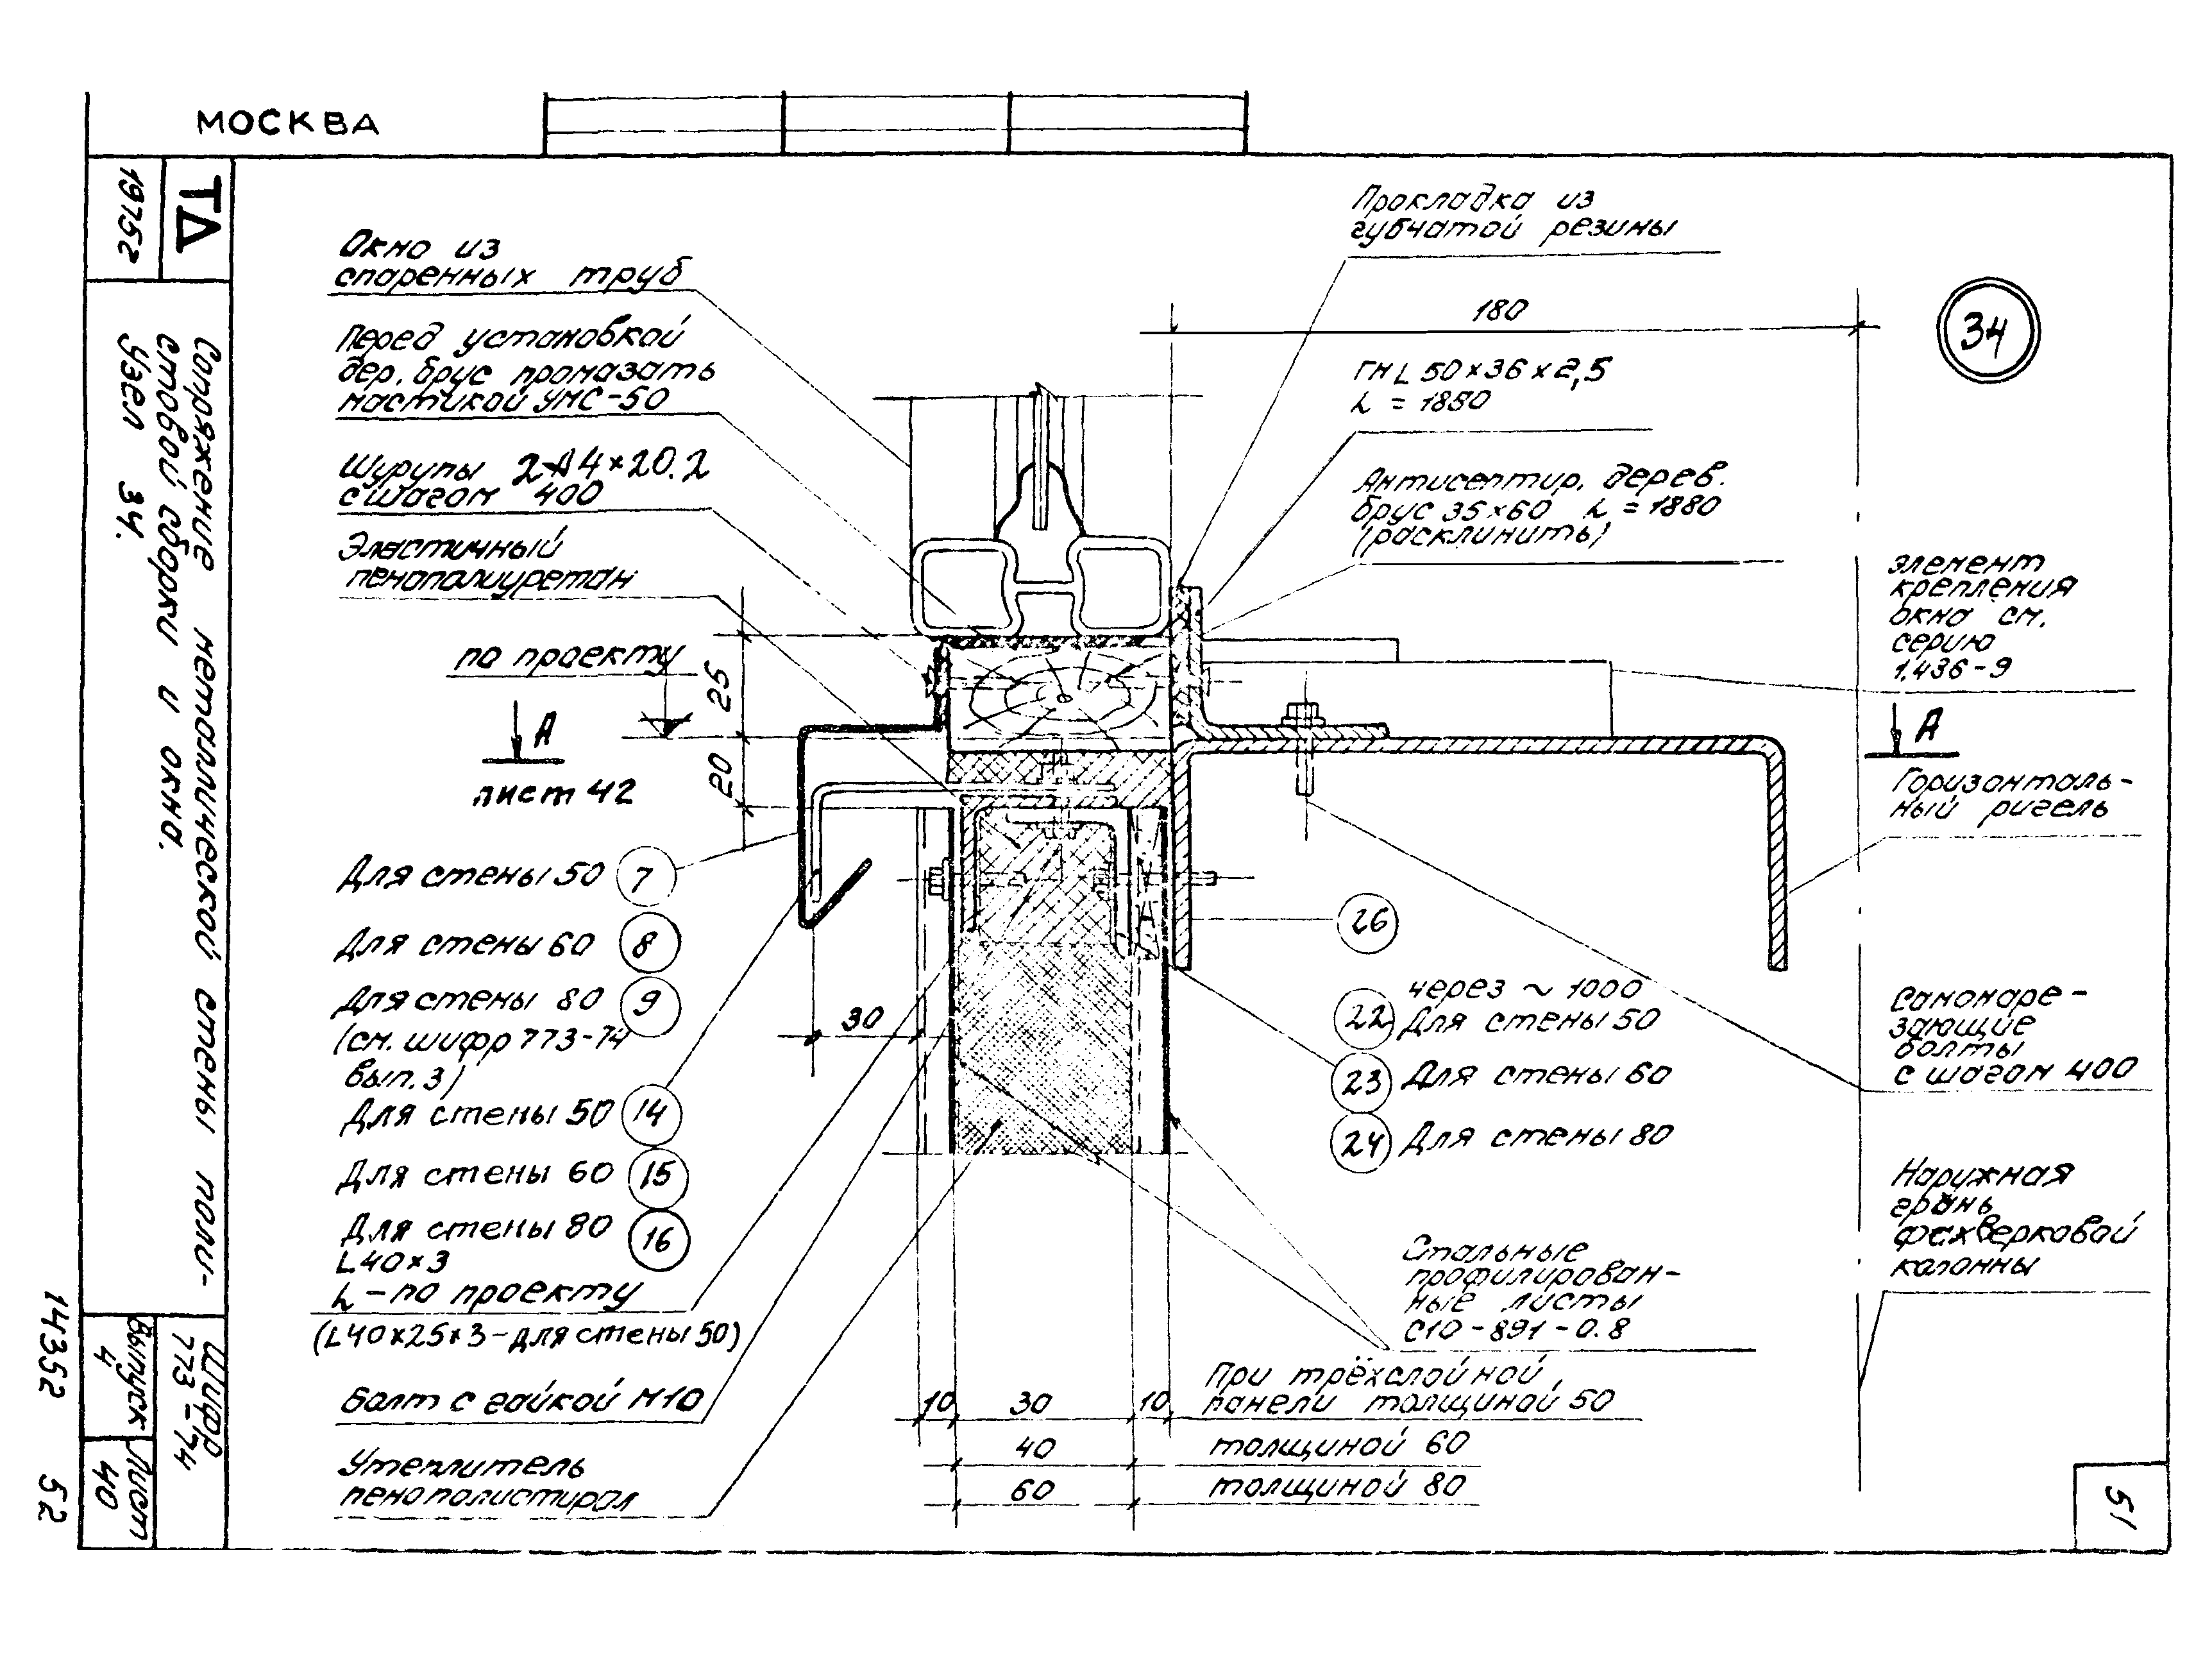 МОСКВА
ТД
1975г
Сопряжение металлической стены поли-
стовой сборки и окна.
Узел 34.
Шифр
773-74
Выпуск
4
Лист
40
14352 52
Окно из
спаренных труб
Перед установкой
дер. брус промазать
мастикой УМС-50
Шурупы 2-А4×20.2
с шагом 400
Эластичный
пенополиуретан
по проекту
А
лист 42
25
20
Для стены 50 7
Для стены 60 8
Для стены 80 9
(см. шифр 773-74
вып. 3)
Для стены 50 14
Для стены 60 15
Для стены 80 16
L40×3
L - по проекту
(L40×25×3-для стены 50)
Болт с гайкой М10
Утеплитель
пенополистирол
30
Прокладка из
губчатой резины
180
34
ГН L 50×36×2,5
L = 1880
Антисептир. дерев.
брус 35×60 L = 1880
(расклинить)
элемент
крепления
окна см.
серию
1.436-9
А
Горизонталь-
ный ригель
26
через ~ 1000
22 Для стены 50
23 Для стены 60
24 Для стены 80
Самонаре-
зающие
болты
с шагом 400
Наружная
грань
фахверковой
колонны
Стальные
профилирован-
ные листы
С10-891-0.8
При трёхслойной
10 30 10 панели толщиной 50
40 толщиной 60
60 толщиной 80
51